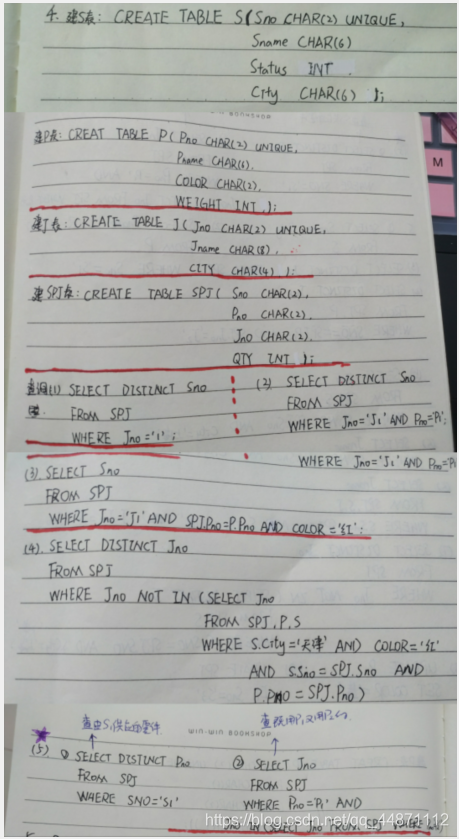 4. 建S表: CREATE TABLE S( Sno CHAR(2) UNIQUE,
Sname CHAR(6)
Status INT
City CHAR(6) );
WIN-WIN BOOKSHOP
建P表: CREAT TABLE P( Pno CHAR(2) UNIQUE,
Pname CHAR(6).
COLOR CHAR(2).
WEIGHT INT );
M
建J表: CREATE TABLE J( Jno CHAR(2) UNIQUE,
Jname CHAR(8).
CITY CHAR(4) );
建SPJ表: CREATE TABLE SPJ( Sno CHAR(2),
Pno CHAR(2).
Jno CHAR(2).
QTY INT );
查询(1) SELECT DISTINCT Sno
FROM SPJ
WHERE Jno='1' ;
(2) SELECT DISTINCT Sno
FROM SPJ
WHERE Jno='J1' AND Pno='P1';
WHERE Jno='J1' AND Pno='P1'
(3). SELECT Sno
FROM SPJ
WHERE Jno='J1' AND SPJ.Pno=P.Pno AND COLOR='红';
(4). SELECT DISTINCT Jno
FROM SPJ
WHERE Jno NOT IN (SELECT Jno
FROM SPJ, P, S
WHERE S.City='天津' AND COLOR='红'
AND S.Sno=SPJ.Sno AND
P.Pno=SPJ.Pno)
WIN-WIN BOOKSHOP
(5) ① SELECT DISTINCT Pno
FROM SPJ
WHERE SNO='S1'
② SELECT Jno
FROM SPJ
WHERE Pno='P1' AND
Jno IN (SELECT Jno FROM SPJ
https://blog.csdn.net/qq_44871112